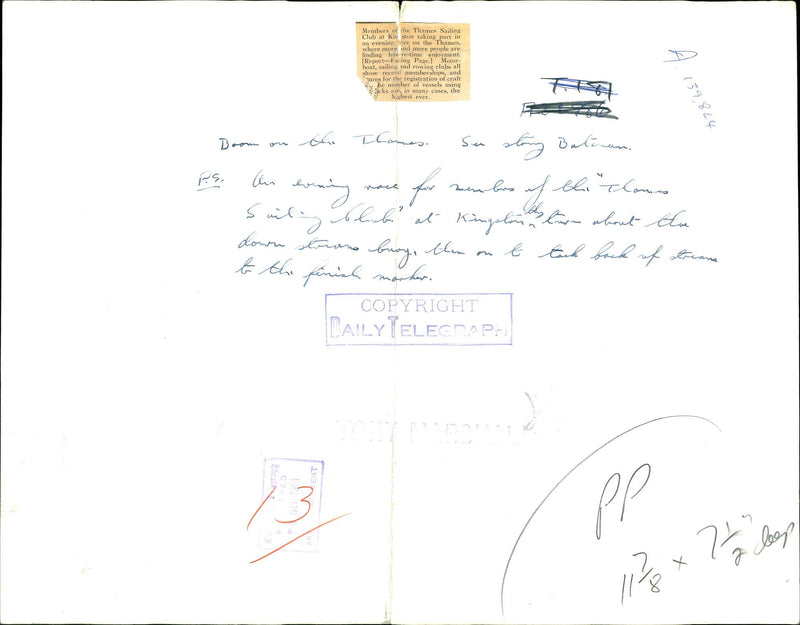 Members of the Thames Sailing
Club at Kingston taking part in
an evening race on the Thames,
where more and more people are
finding leisure-time enjoyment.
[Report—Facing Page.] Motor-
boat, sailing and rowing clubs all
show record memberships, and
for the registration of craft
he number of vessels using
cks are, in many cases, the
highest ever.
T.181
D.139,824
Boom on the Thames. See story Bateman.
P.G. An evening race for members of the "Thames
Sailing Club" at Kingston, they turn about the
down stream buoy, then on to tack back up stream
to the finish marker.
COPYRIGHT
DAILY TELEGRAPH
13
PP
11 7/8 x 7 1/2" deep